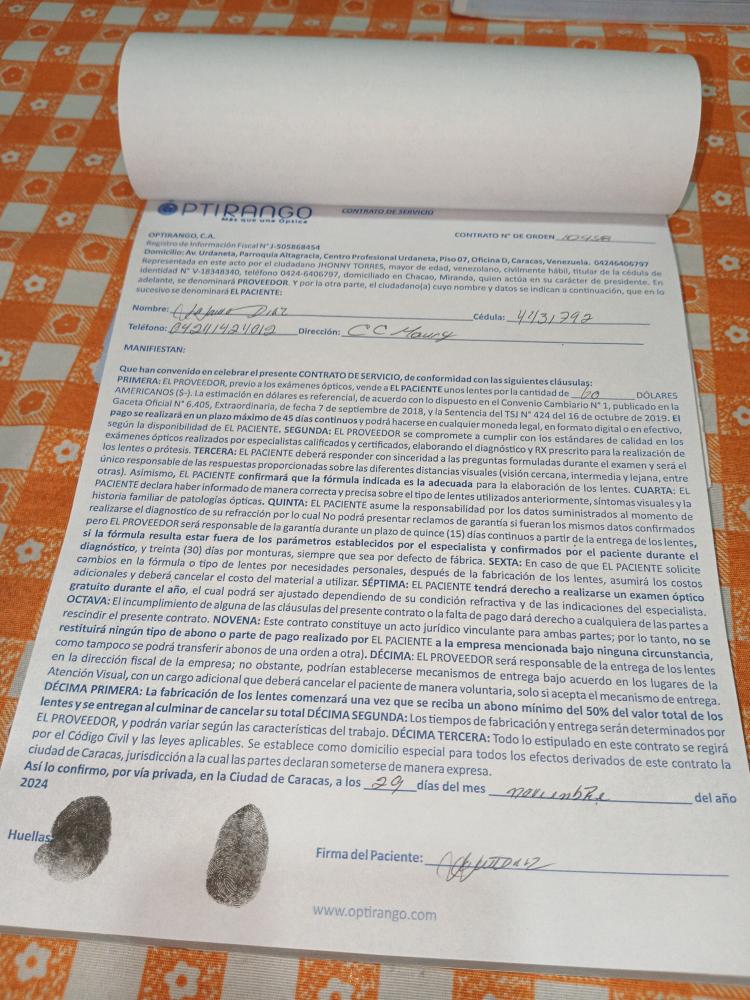 OPTIRANGO
Más que una Óptica
CONTRATO DE SERVICIO
OPTIRANGO, C.A.
CONTRATO N° DE ORDEN
Registro de Información Fiscal N° J-505868454
Domicilio: Av. Urdaneta, Parroquia Altagracia, Centro Profesional Urdaneta, Piso 07, Oficina D, Caracas, Venezuela. 04246406797
Representada en este acto por el ciudadano JHONNY TORRES, mayor de edad, venezolano, civilmente hábil, titular de la cédula de
identidad N° V-18348340, teléfono 0424-6406797, domiciliado en Chacao, Miranda, quien actúa en su carácter de presidente. En
adelante, se denominará PROVEEDOR. Y por la otra parte, el ciudadano(a) cuyo nombre y datos se indican a continuación, que en lo
sucesivo se denominará EL PACIENTE:
Nombre: Diaz Cédula: 4431792
Teléfono: 04241424012 Dirección: CC Maury
MANIFIESTAN:
Que han convenido en celebrar el presente CONTRATO DE SERVICIO, de conformidad con las siguientes cláusulas:
PRIMERA: EL PROVEEDOR, previo a los exámenes ópticos, vende a EL PACIENTE unos lentes por la cantidad de 60 DÓLARES
AMERICANOS ($-). La estimación en dólares es referencial, de acuerdo con lo dispuesto en el Convenio Cambiario N° 1, publicado en la
Gaceta Oficial N° 6.405, Extraordinaria, de fecha 7 de septiembre de 2018, y la Sentencia del TSJ N° 424 del 16 de octubre de 2019. El
pago se realizará en un plazo máximo de 45 días continuos y podrá hacerse en cualquier moneda legal, en formato digital o en efectivo,
según la disponibilidad de EL PACIENTE. SEGUNDA: EL PROVEEDOR se compromete a cumplir con los estándares de calidad en los
exámenes ópticos realizados por especialistas calificados y certificados, elaborando el diagnóstico y RX prescrito para la realización de
los lentes o prótesis. TERCERA: EL PACIENTE deberá responder con sinceridad a las preguntas formuladas durante el examen y será el
único responsable de las respuestas proporcionadas sobre las diferentes distancias visuales (visión cercana, intermedia y lejana, entre
otras). Asimismo, EL PACIENTE confirmará que la fórmula indicada es la adecuada para la elaboración de los lentes. CUARTA: EL
PACIENTE declara haber informado de manera correcta y precisa sobre el tipo de lentes utilizados anteriormente, síntomas visuales y la
historia familiar de patologías ópticas. QUINTA: EL PACIENTE asume la responsabilidad por los datos suministrados al momento de
realizarse el diagnostico de su refracción por lo cual No podrá presentar reclamos de garantía si fueran los mismos datos confirmados
pero EL PROVEEDOR será responsable de la garantía durante un plazo de quince (15) días continuos a partir de la entrega de los lentes,
si la fórmula resulta estar fuera de los parámetros establecidos por el especialista y confirmados por el paciente durante el
diagnóstico, y treinta (30) días por monturas, siempre que sea por defecto de fábrica. SEXTA: En caso de que EL PACIENTE solicite
cambios en la fórmula o tipo de lentes por necesidades personales, después de la fabricación de los lentes, asumirá los costos
adicionales y deberá cancelar el costo del material a utilizar. SÉPTIMA: EL PACIENTE tendrá derecho a realizarse un examen óptico
gratuito durante el año, el cual podrá ser ajustado dependiendo de su condición refractiva y de las indicaciones del especialista.
OCTAVA: El incumplimiento de alguna de las cláusulas del presente contrato o la falta de pago dará derecho a cualquiera de las partes a
rescindir el presente contrato. NOVENA: Este contrato constituye un acto jurídico vinculante para ambas partes; por lo tanto, no se
restituirá ningún tipo de abono o parte de pago realizado por EL PACIENTE a la empresa mencionada bajo ninguna circunstancia,
como tampoco se podrá transferir abonos de una orden a otra). DÉCIMA: EL PROVEEDOR será responsable de la entrega de los lentes
en la dirección fiscal de la empresa; no obstante, podrían establecerse mecanismos de entrega bajo acuerdo en los lugares de la
Atención Visual, con un cargo adicional que deberá cancelar el paciente de manera voluntaria, solo si acepta el mecanismo de entrega.
DÉCIMA PRIMERA: La fabricación de los lentes comenzará una vez que se reciba un abono mínimo del 50% del valor total de los
lentes y se entregan al culminar de cancelar su total DÉCIMA SEGUNDA: Los tiempos de fabricación y entrega serán determinados por
EL PROVEEDOR, y podrán variar según las características del trabajo. DÉCIMA TERCERA: Todo lo estipulado en este contrato se regirá
por el Código Civil y las leyes aplicables. Se establece como domicilio especial para todos los efectos derivados de este contrato la
ciudad de Caracas, jurisdicción a la cual las partes declaran someterse de manera expresa.
Así lo confirmo, por vía privada, en la Ciudad de Caracas, a los 29 días del mes noviembre del año
2024
Huellas:
Firma del Paciente:
www.optirango.com